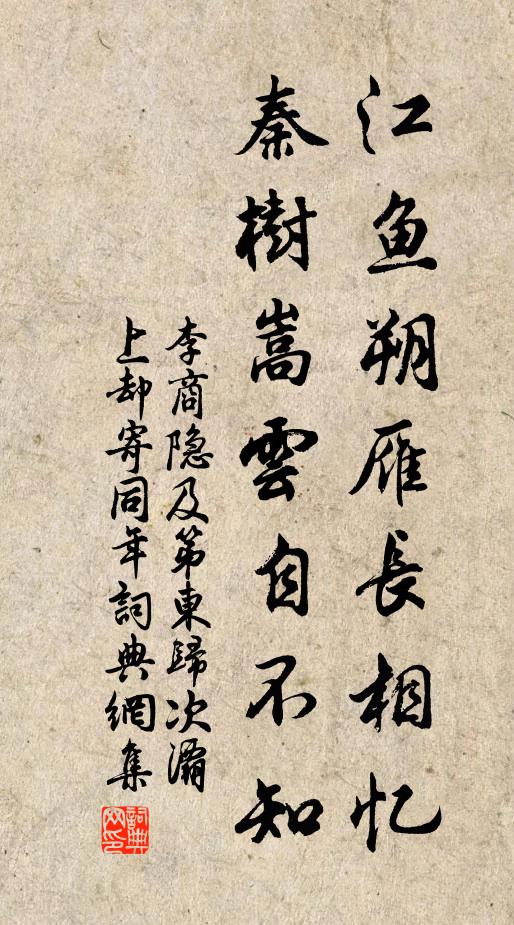 江鱼朔雁长相忆
秦樹嵩雲自不知
李商隐及第東歸次灞
上却寄同年詞典網集
詞典
网印